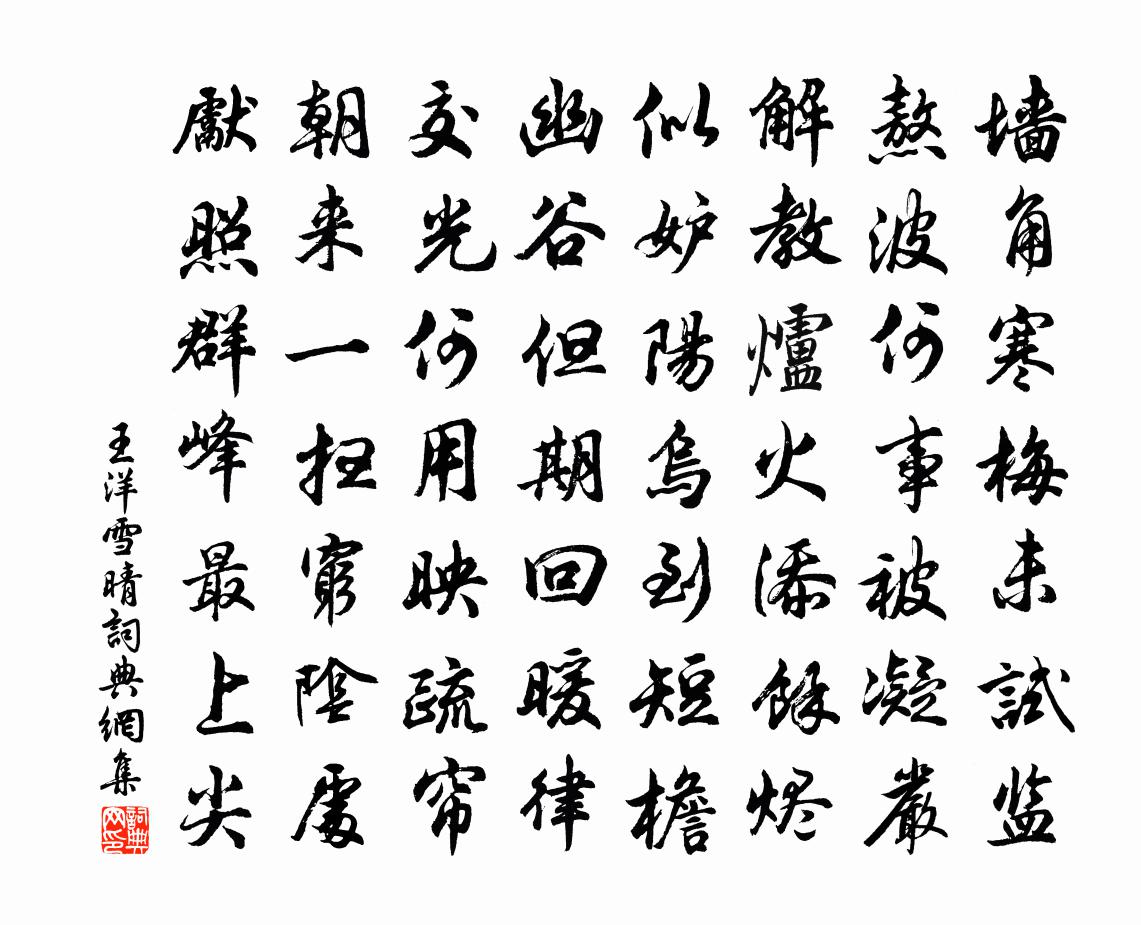 墙角寒梅未試监
熬波何事被凝嚴
解教爐火添餘烬
似妒陽烏到短檐
幽谷但期回暖律
交光何用映疏帘
朝来一扫窮陰處
獻照群峰最上尖
王洋雪晴詞典網集
詞典网印